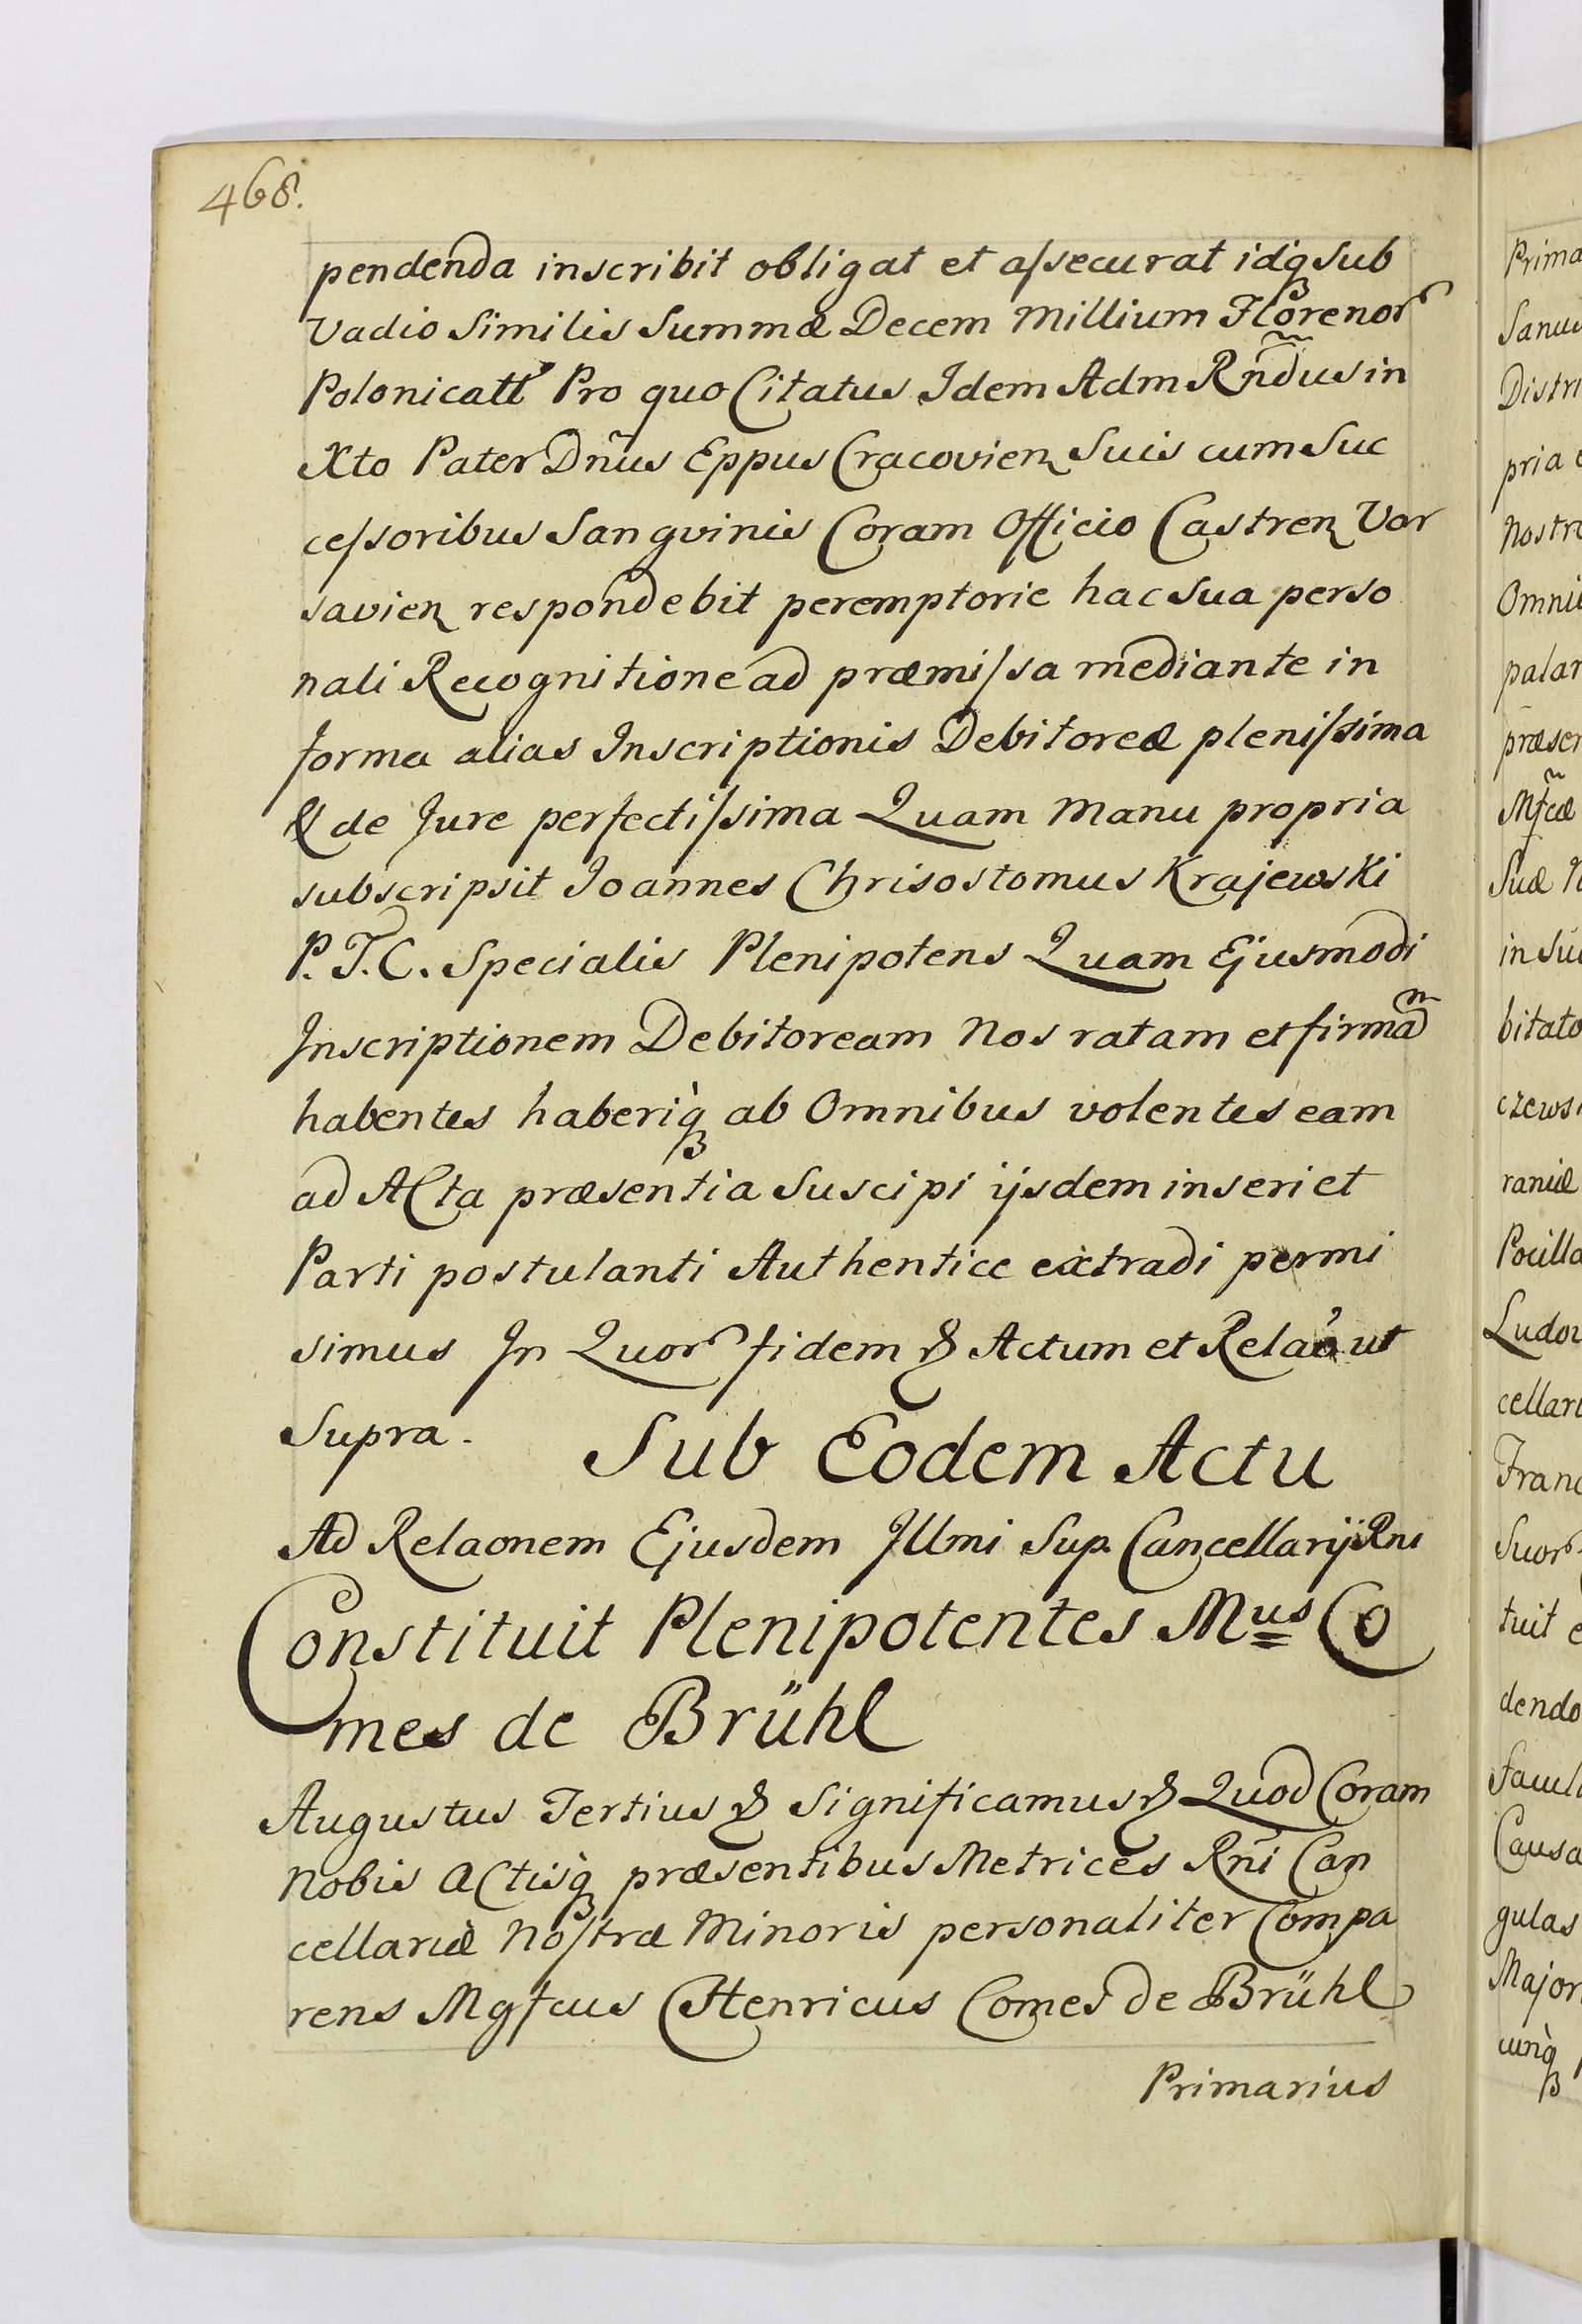 468.
pendenda inscribit obligat et assecurat idq́ꝫ Sub
Vadio Similis Summæ Decem Millium Florenor
Polonicall Pro quo Citatus Idem Adm Rñdus in
Xto Pater Dñus Eppus Cracovien Suis cum Suc
cessoribus Sangvinis Coram Officio Castren Var
savien respondebit peremptorie hac Sua perso
nali Recognitione ad præmissa mediante in
forma alias Inscriptionis Debitoreæ plenissima
& de Jure perfectissima Quam Manu propria
subscripsit Joannes Chrisostomus Krajewski
P. T. C. Specialis Plenipotens Quam Ejusmodi
Inscriptionem Debitoream Nos ratam et firmam
habentes haberiq̀ꝫ ab Omnibus volentes eam
ad Acta præsentia Suscipi ijsdem inseri et
Parti postulanti Authentice extradi permi
simus In Quor fidem & Actum et Relaõ ut
Supra.
Sub Eodem Actu
Ad Relaonem Ejusdem Illmi Sup. Cancellarij Rni
Constituit Plenipotentes Mus Co
mes de Brühl
Augustus Tertius & Significamus & Quod Coram
Nobis Actisq̀ꝫ præsentibus Metrices Rñi Can
cellariæ Nostræ Minoris personaliter Compa
rens Mgfcus Henricus Comes de Brühl
Primarius
Prima
Sanui
Distri
pria
Nostr
Omni
palar
præser
Mfcæ
Suæ
in Su
bitato
czews
raniæ
Pocilla
Ludov
cellari
Franc
Suor
tuit e
dendo
Facul
Causa
gulas
Major
cunq̀ꝫ